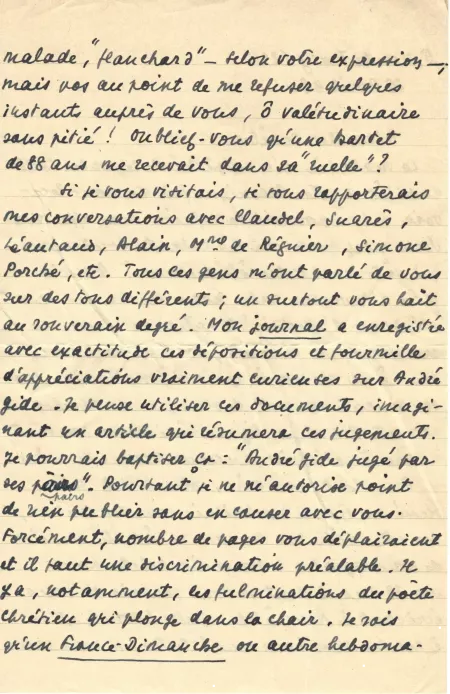 malade, "flanchard" — selon votre expression —,
mais pas au point de me refuser quelques
instants auprès de vous, ô valétudinaire
sans pitié ! Oubliez-vous qu'une Bartet
de 88 ans me recevait dans sa "ruelle" ?
Si je vous visitais, je vous rapporterais
mes conversations avec Claudel, Suarès,
Léautaud, Alain, Mme de Régnier, Simone
Porché, etc. Tous ces gens m'ont parlé de vous
sur des tons différents ; un surtout vous hait
au souverain degré. Mon journal a enregistré
avec exactitude ces dépositions et fourmille
d'appréciations vraiment curieuses sur André
Gide. Je pense utiliser ces documents, imagi-
nant un article qui résumera ces jugements.
Je pourrais baptiser ça : "André Gide jugé par
ses pairs". Pourtant je ne m'autorise point
pairs
de rien publier sans en causer avec vous.
Forcément, nombre de pages vous déplairaient
et il faut une discrimination préalable. Il
y a, notamment, les fulminations du poète
chrétien qui plonge dans la chair. Je sais
qu'un France-Dimanche ou autre hebdoma-